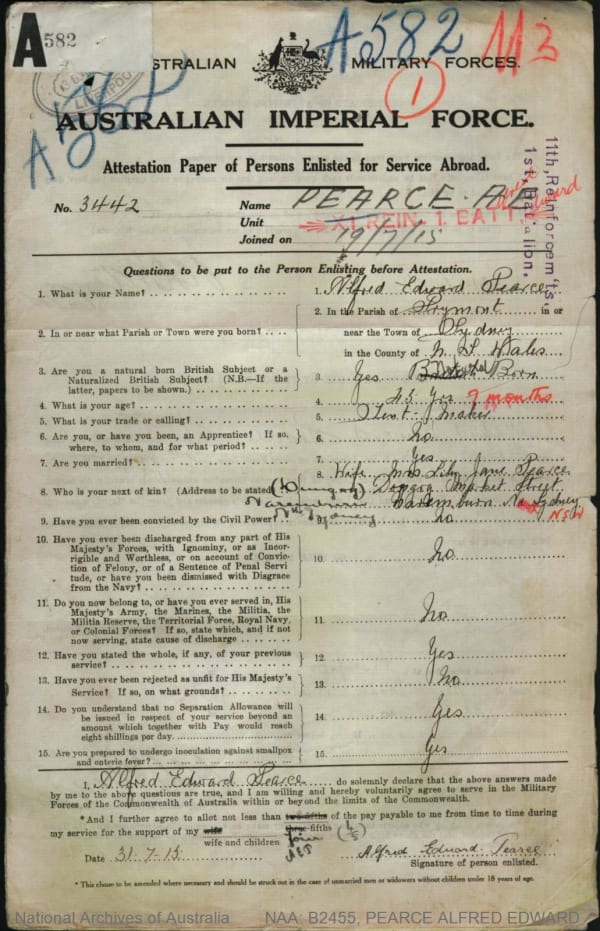 A 582
A582
M3
1
AUSTRALIAN MILITARY FORCES.
LIVERPOOL
A 582
AUSTRALIAN IMPERIAL FORCE.
Attestation Paper of Persons Enlisted for Service Abroad.
11th Reinforcem'ts,
1st Battalion.
No. 3442 Name PEARCE. A E
Unit XI REIN. 1. BATT.
Joined on 19/7/15
Questions to be put to the Person Enlisting before Attestation.
1. What is your Name? 1. Alfred Edward Pearce
2. In or near what Parish or Town were you born? 2. In the Parish of Pyrmont in or
near the Town of Sydney
in the County of N. S. Wales
3. Are you a natural born British Subject or a
Naturalized British Subject? (N.B.—If the
latter, papers to be shown.) 3. Yes Natural Born
4. What is your age? 4. 43 Yrs 9 months
5. What is your trade or calling? 5. Tent Maker
6. Are you, or have you been, an Apprentice? If so,
where, to whom, and for what period? 6. No
7. Are you married? 7. Yes
8. Who is your next of kin? (Address to be stated) 8. Wife Mrs Lily Jane Pearce
Market Street
Naremburn Sydney
NSW
9. Have you ever been convicted by the Civil Power? 9. No
10. Have you ever been discharged from any part of His
Majesty's Forces, with Ignominy, or as Incor-
rigible and Worthless, or on account of Convic-
tion of Felony, or of a Sentence of Penal Servi
tude, or have you been dismissed with Disgrace
from the Navy? 10. No
11. Do you now belong to, or have you ever served in, His
Majesty's Army, the Marines, the Militia, the
Militia Reserve, the Territorial Force, Royal Navy,
or Colonial Forces? If so, state which, and if not
now serving, state cause of discharge 11. No
12. Have you stated the whole, if any, of your previous
service? 12. Yes
13. Have you ever been rejected as unfit for His Majesty's
Service? If so, on what grounds? 13. No
14. Do you understand that no Separation Allowance will
be issued in respect of your service beyond an
amount which together with Pay would reach
eight shillings per day. 14. Yes
15. Are you prepared to undergo inoculation against smallpox
and enteric fever? 15. Yes
I, Alfred Edward Pearce do solemnly declare that the above answers made
by me to the above questions are true, and I am willing and hereby voluntarily agree to serve in the Military
Forces of the Commonwealth of Australia within or beyond the limits of the Commonwealth.
*And I further agree to allot not less than two-fifths of the pay payable to me from time to time during
my service for the support of my wife three-fifths
wife and children four
Date 31-7-15 Alfred Edward Pearce
Signature of person enlisted.
*This clause to be amended where necessary and should be struck out in the case of unmarried men or widowers without children under 18 years of age.
National Archives of Australia NAA: B2455, PEARCE ALFRED EDWARD